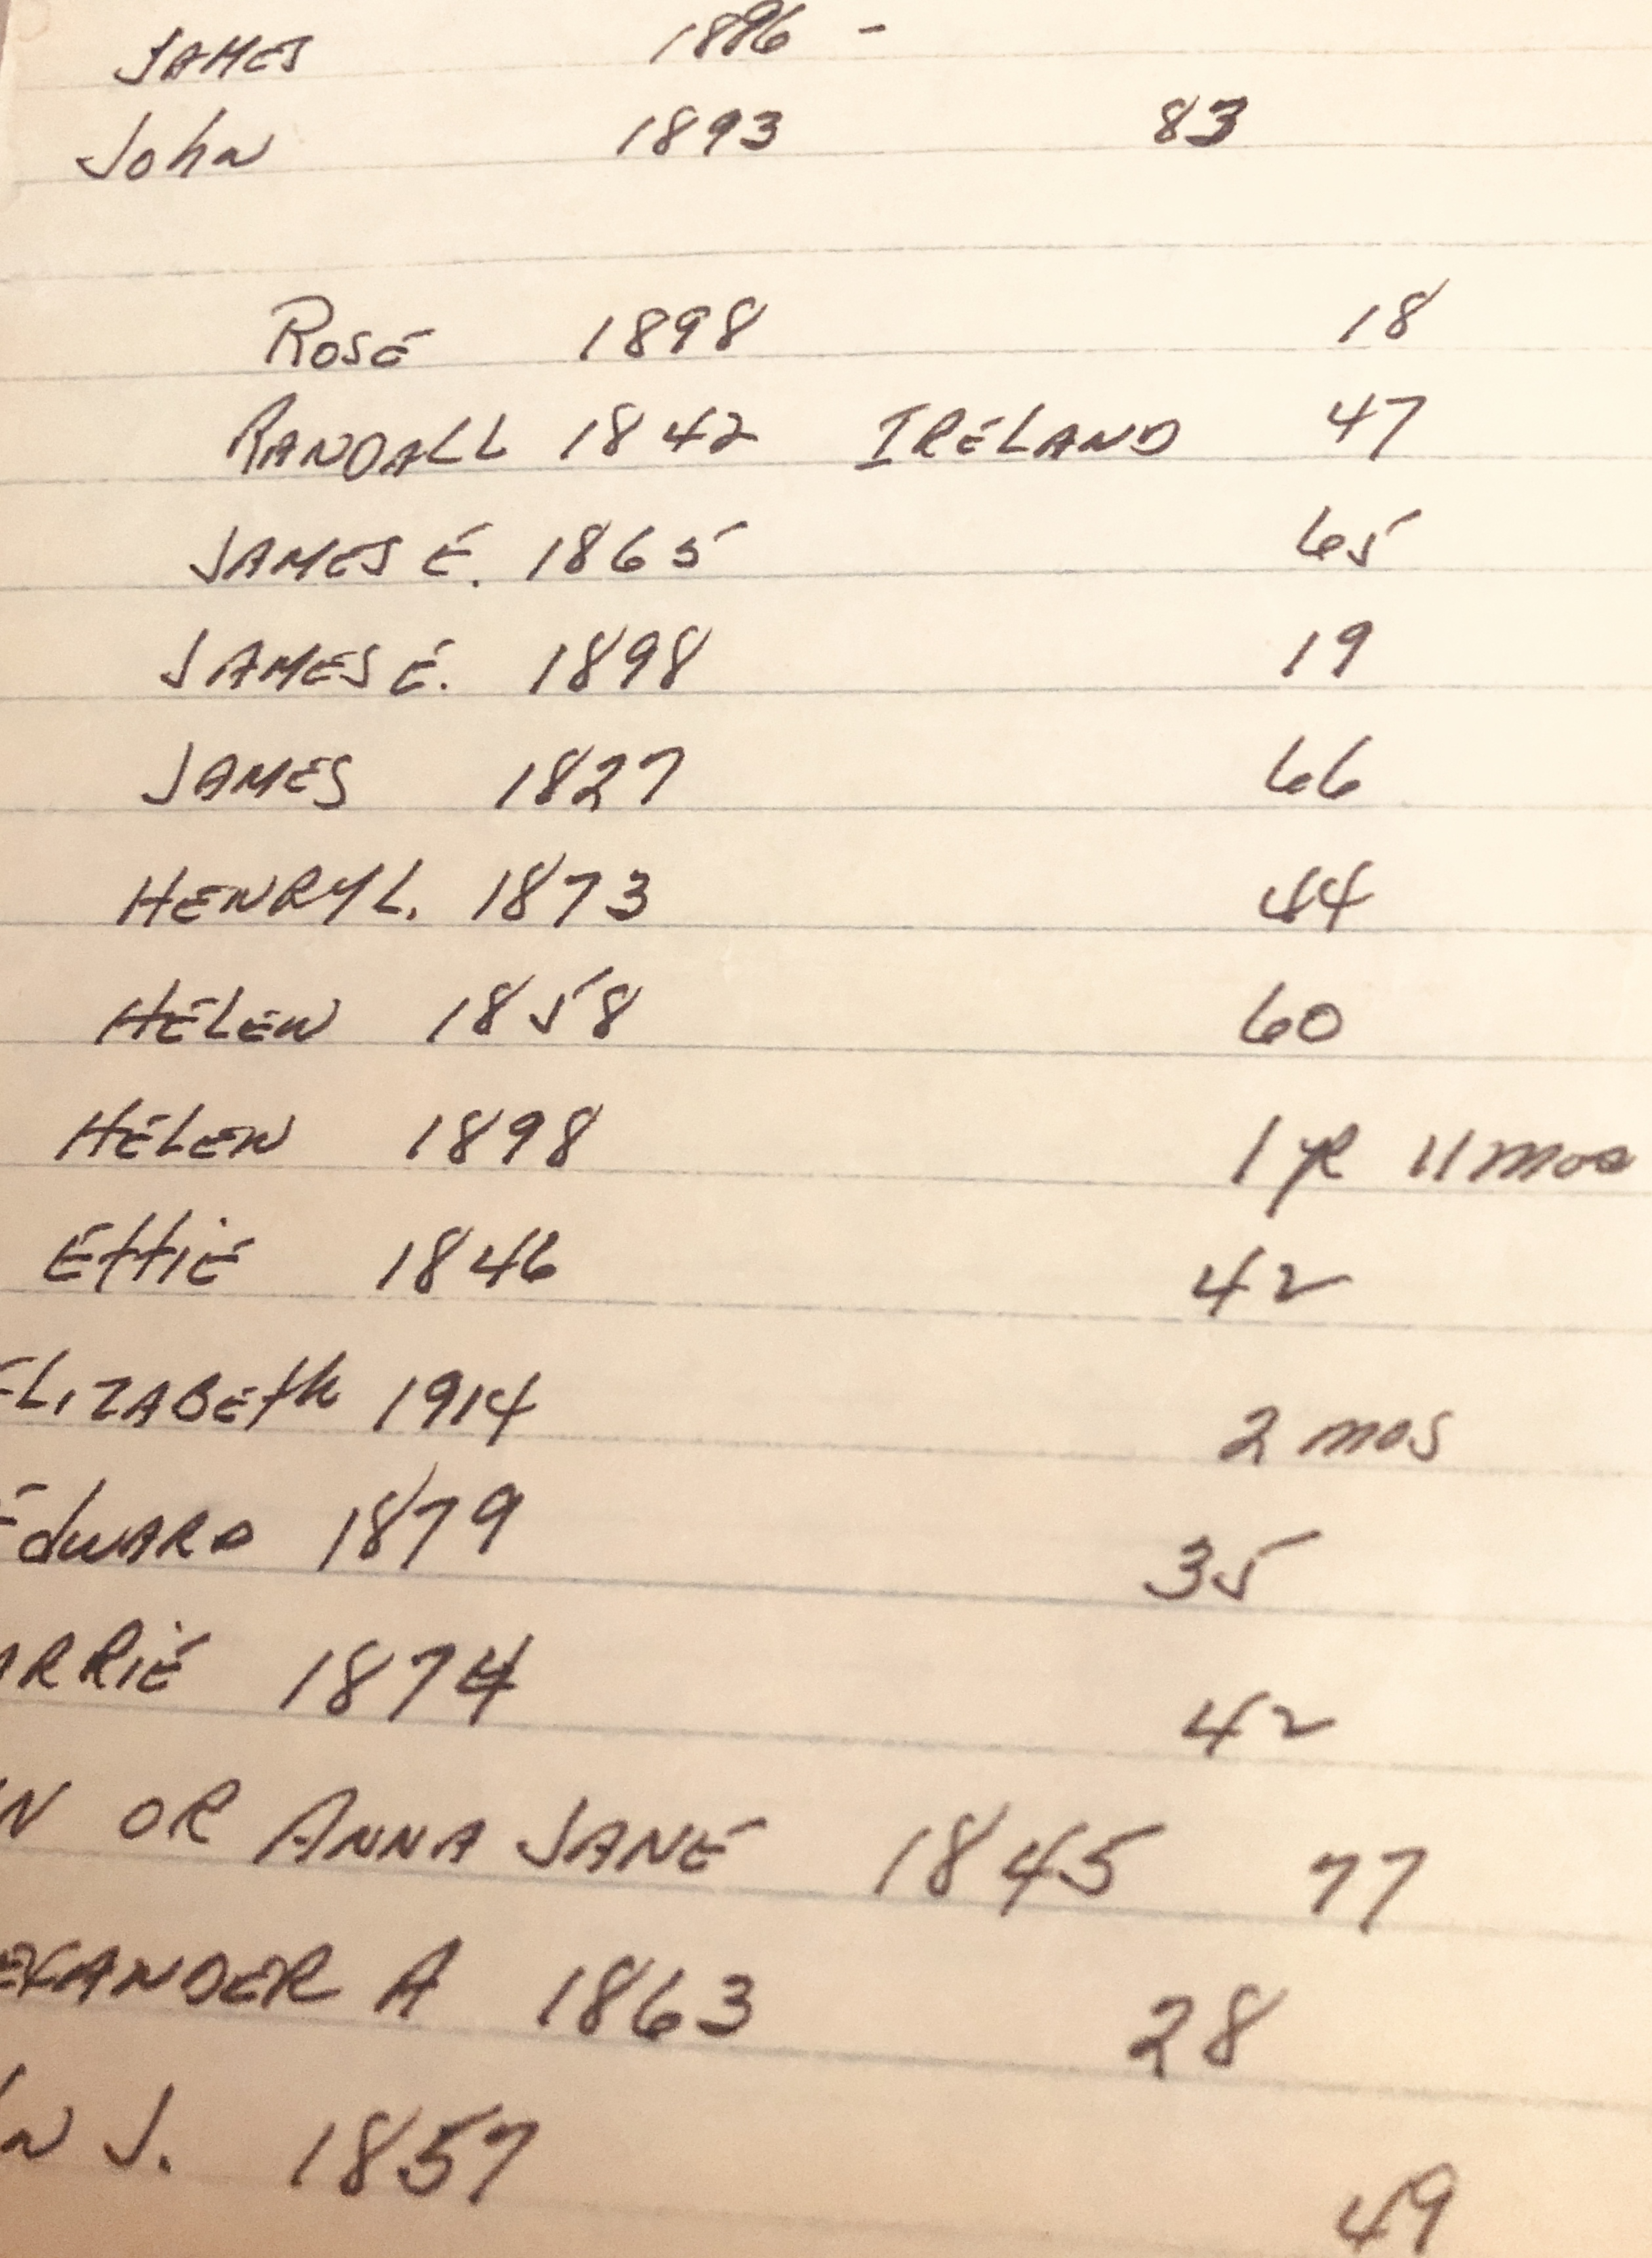 JAMES 1896 -
John 1893 83
ROSE 1898 18
RANDALL 1842 IRELAND 47
JAMES E. 1865 65
JAMES E. 1898 19
JAMES 1827 66
HENRY L. 1873 44
HELEN 1858 60
HELEN 1898 1 yR 11 mos
EffiE 1846 42
ELIZABEth 1914 2 mos
EdwARD 1879 35
ARRiE 1874 42
N OR ANNA JANE 1845 77
EXANDER A 1863 28
N J. 1857 49